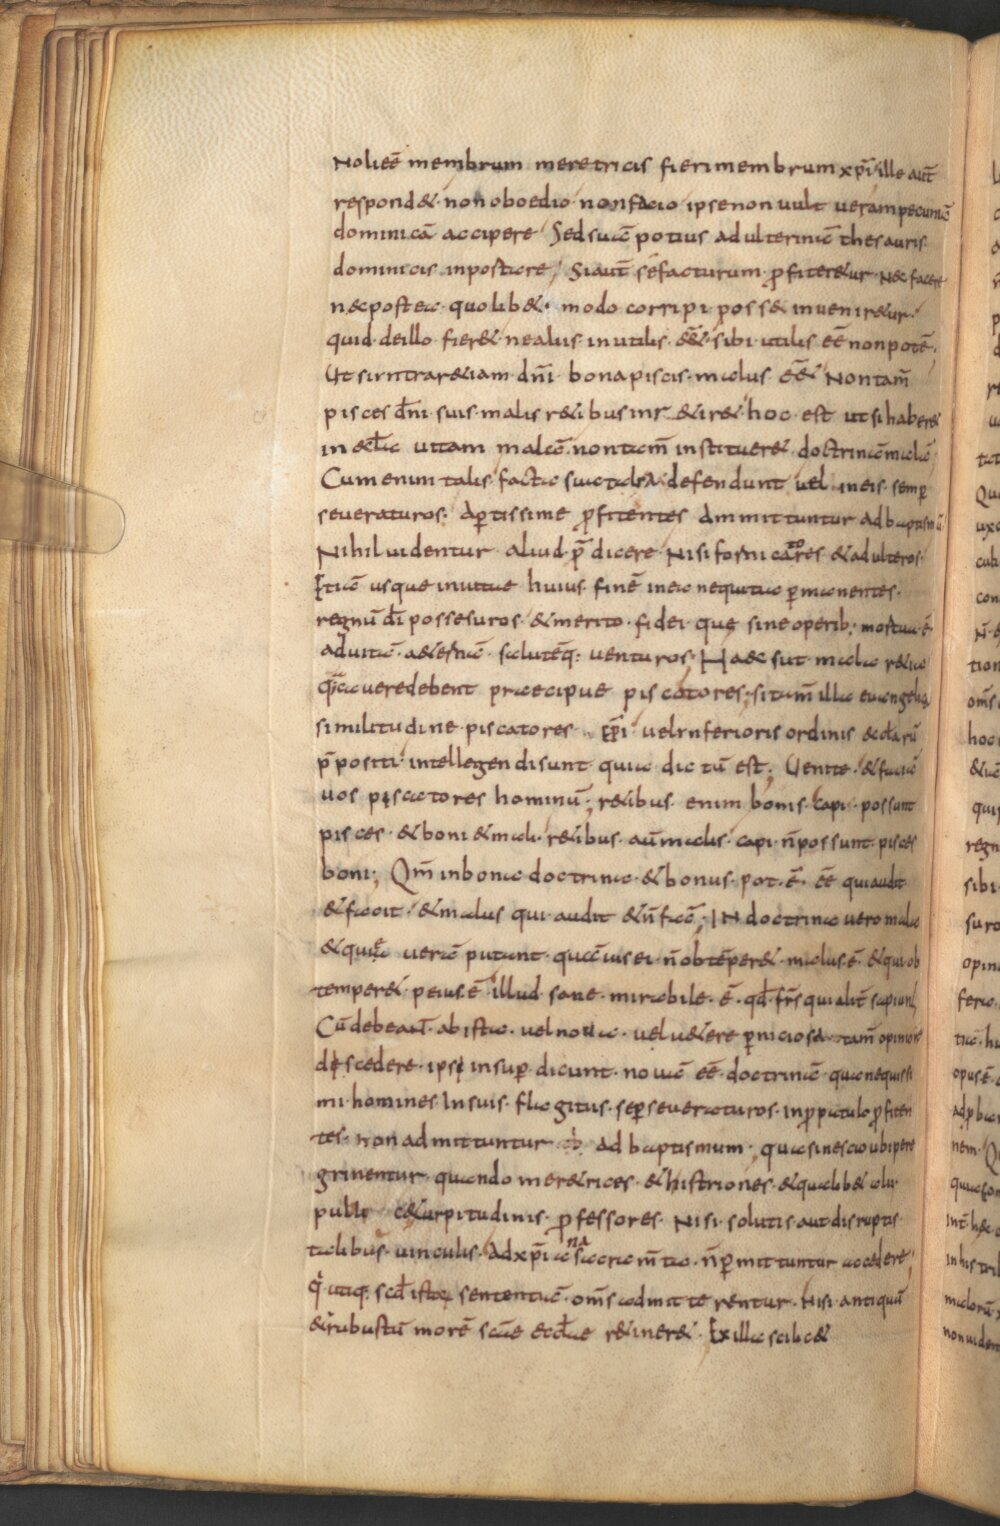 Noli eē membrum meretricis fieri membrum xp̄i ille aut̄
respond& non oboedio non facio ipse non uult ueram pecuniā
dominicā accipere Sed suā potius adulterinā thesauris
dominicis inportare, Si aut̄ se facturum p̄fiteretur Nec facere
nec postea quolib& modo corripi poss& inueniretur.
quid de illo fier& ne aliis inutilis ēēt sibi utilis eē non potē.
Ut si intra retiam dn̄i bona piscis malus eēt Non tam̄
pisces dn̄i suis malis retibus inr&ir& hoc est ut si haber&
in eccl̄a uitam malā non tam̄ institueret doctrinā malā
Cum enim talia facta sua talia defendunt uel in eis semp
seueraturos. Apertissime p̄fitentes ammittuntur ad baptismū
Nihil uidentur aliud p̄dicere Nisi fornicatores & adulteros.
Etiā usque in uitae huius finē in ea nequitia p̄manentes.
regnū dī possesuros & merito fidei quę sine operib; mortua ē
ad uitā aeternā salutēq; uenturos; Haec sut mala retia
q̄ cauere debent praecipue piscatores; si tam̄ illa euangelica
similitudine piscatores ep̄i uel inferioris ordinis eccl̄arū
p̄positi intellegendi sunt quia dictū est; Uenite & faciā
uos pęscatores hominū; retibus enim bonis capi possunt
pisces & boni & mali. retibus aū malis capi n̄ possunt pisces
boni; Qm̄ in bona doctrina & bonus pot ē eē qui audit
& facit & malus qui audit & n̄ facē; IN doctrina uero mala
& qui eā uerā putant quāuis ei n̄ obtēper& malus ē & qui ob
temper& peius ē illud sane mirabile ē qd̄ frs̄ qui alit̄ sapiunt
Cū debeant ab ista uel noua uel uetere perniciosa tam̄ opinione
dęscedere ipsę insup dicunt nouā eē doctrinā qua nequissi
mi homines In suis flagitiis se p̄seueraturos in p̄patulo p̄fiten
tes non admittuntur ad baptismum, quasi nescio ubi pere
grinentur quando meretrices & histriones & quilib& alii
publi cae turpitudinis p̄fessores Nisi solutis aut disruptis
talibus uinculis Ad xp̄iana sacram̄ta n̄ p̄mittuntur accedere,
q̄ utiq; scd̄ istoę sententiā om̄s admitterentur Nisi antiquū
& rubustū morē scā eccl̄a retiner& Ex illa scilic&